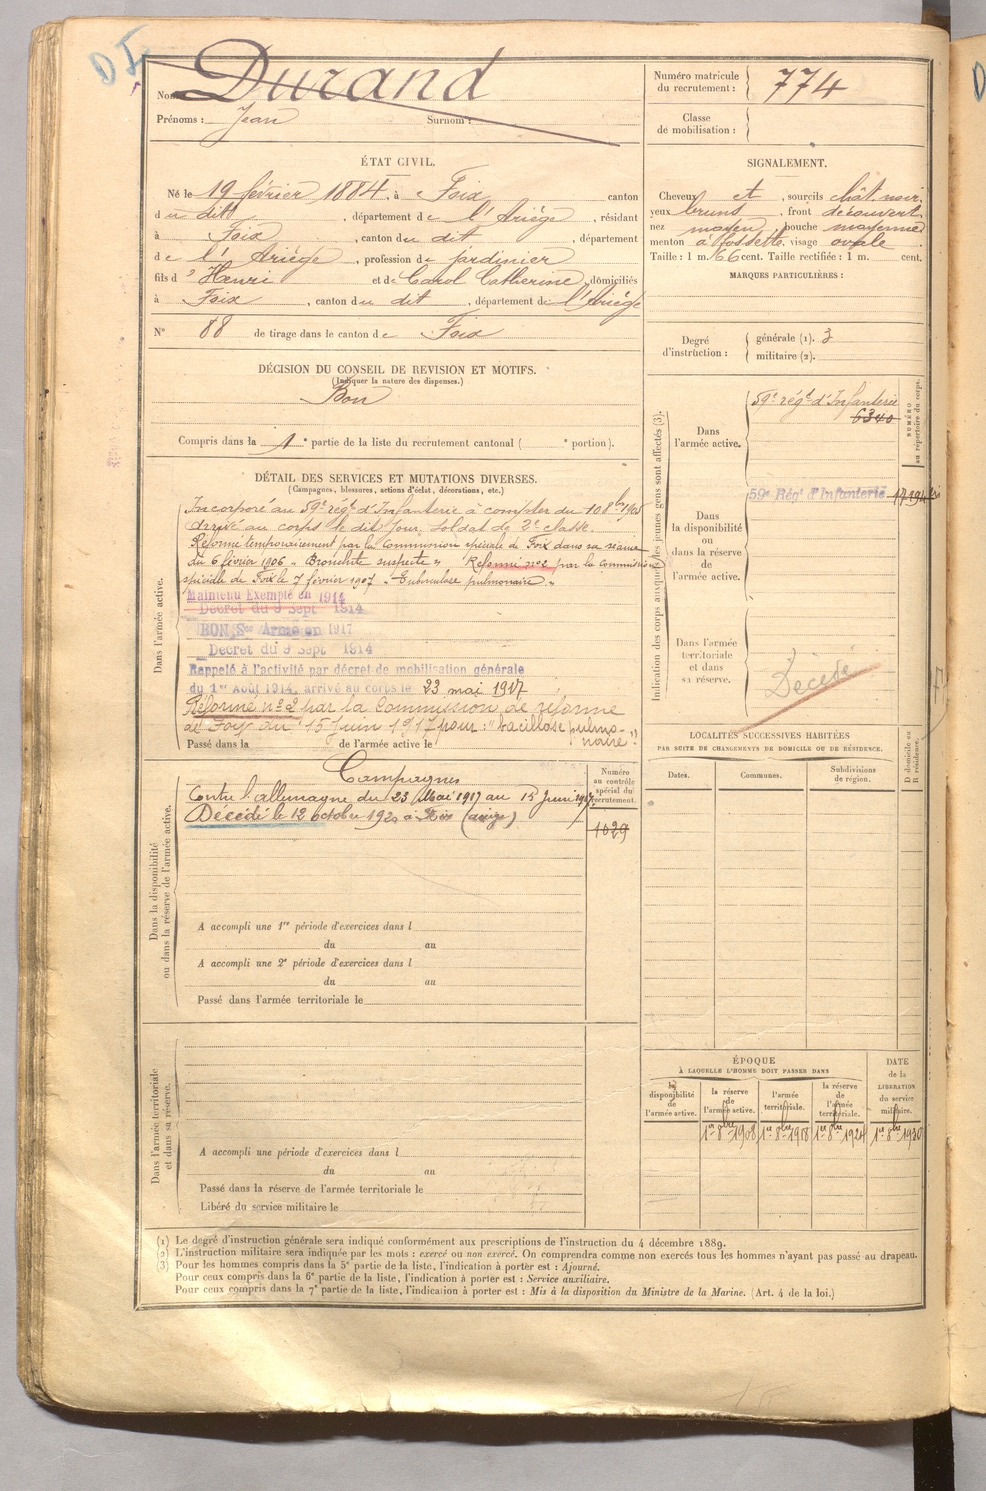 D I
Nom : Durand
Prénoms : Jean Surnom :
ÉTAT CIVIL.
Né le 19 février 1884, à Foix canton
du dit, département de l'Ariège, résidant
à Foix, canton du dit, département
de l'Ariège, profession de jardinier
fils d' Henri et de Carol Catherine, domiciliés
à Foix, canton du dit, département de l'Ariége
N° 88 de tirage dans le canton de Foix
DÉCISION DU CONSEIL DE REVISION ET MOTIFS.
(Indiquer la nature des dispenses.)
Bon
Compris dans la 1e partie de la liste du recrutement cantonal ( e portion).
DÉTAIL DES SERVICES ET MUTATIONS DIVERSES.
(Campagnes, blessures, actions d'éclat, décorations, etc.)
Dans l'armée active.
Incorporé au 59e régt d'Infanterie à compter du 10 8bre 1905
Arrivé au corps le dit jour, soldat de 2e classe.
Réformé temporairement par la Commission spéciale de Foix dans sa séance
du 6 février 1906 « Bronchite suspecte » Réformé n° 2 par la Commission
spéciale de Foix le 7 février 1907 « Tuberculose pulmonaire. »
Maintenu Exempté en 1914
Décret du 9 Sept 1914
BON Sce Armé en 1917
Décret du 9 Sept 1914
Rappelé à l'activité par décret de mobilisation générale
du 1er Août 1914, arrivé au corps le 23 mai 1917
Réformé n° 2 par la Commission de réforme
de Foix du 15 Juin 1917 pour : "bacillose pulmo-
naire".
Passé dans la de l'armée active le
Dans la disponibilité
ou dans la réserve de l'armée active.
Campagnes
Contre l'allemagne du 23 Mai 1917 au 15 Juin 1917
Décédé le 12 octobre 1920 à Foix (ariège)
Numéro
au contrôle
spécial du
recrutement.
1029
A accompli une 1re période d'exercices dans l
du au
A accompli une 2e période d'exercices dans l
du au
Passé dans l'armée territoriale le
Dans l'armée territoriale
et dans sa réserve.
A accompli une période d'exercices dans l
du au
Passé dans la réserve de l'armée territoriale le
Libéré du service militaire le
Numéro matricule
du recrutement : 774
Classe
de mobilisation :
SIGNALEMENT.
Cheveux et, sourcils chât. noir,
yeux bruns, front découvert,
nez moyen, bouche moyenne
menton à fossette, visage ovale.
Taille : 1 m. 66 cent. Taille rectifiée : 1 m. cent.
MARQUES PARTICULIÈRES :
Degré
d'instruction :
générale (1). 3
militaire (2).
Indication des corps auxquels les jeunes gens sont affectés (3).
NUMÉRO
au répertoire du corps.
Dans
l'armée active.
59e régt d'Infanterie
6340
59e Régt d'Infanterie
Dans
la disponibilité
ou
dans la réserve
de
l'armée active.
Dans l'armée
territoriale
et dans
sa réserve.
Décédé
LOCALITÉS SUCCESSIVES HABITÉES
PAR SUITE DE CHANGEMENTS DE DOMICILE OU DE RÉSIDENCE.
Dates.
Communes.
Subdivisions
de région.
D domicile ou
R résidence.
ÉPOQUE
À LAQUELLE L'HOMME DOIT PASSER DANS
la
disponibilité
de
l'armée active.
la réserve
de
l'armée active.
l'armée
territoriale.
la réserve
de
l'armée
territoriale.
DATE
de la
LIBÉRATION
du service
militaire.
1er 8bre 1908 1er 8bre 1918 1er 8bre 1924 1er 8bre 1930
(1) Le degré d'instruction générale sera indiqué conformément aux prescriptions de l'instruction du 4 décembre 1889.
(2) L'instruction militaire sera indiquée par les mots : exercé ou non exercé. On comprendra comme non exercés tous les hommes n'ayant pas passé au drapeau.
(3) Pour les hommes compris dans la 5e partie de la liste, l'indication à porter est : Ajourné.
Pour ceux compris dans la 6e partie de la liste, l'indication à porter est : Service auxiliaire.
Pour ceux compris dans la 7e partie de la liste, l'indication à porter est : Mis à la disposition du Ministre de la Marine. (Art. 4 de la loi.)